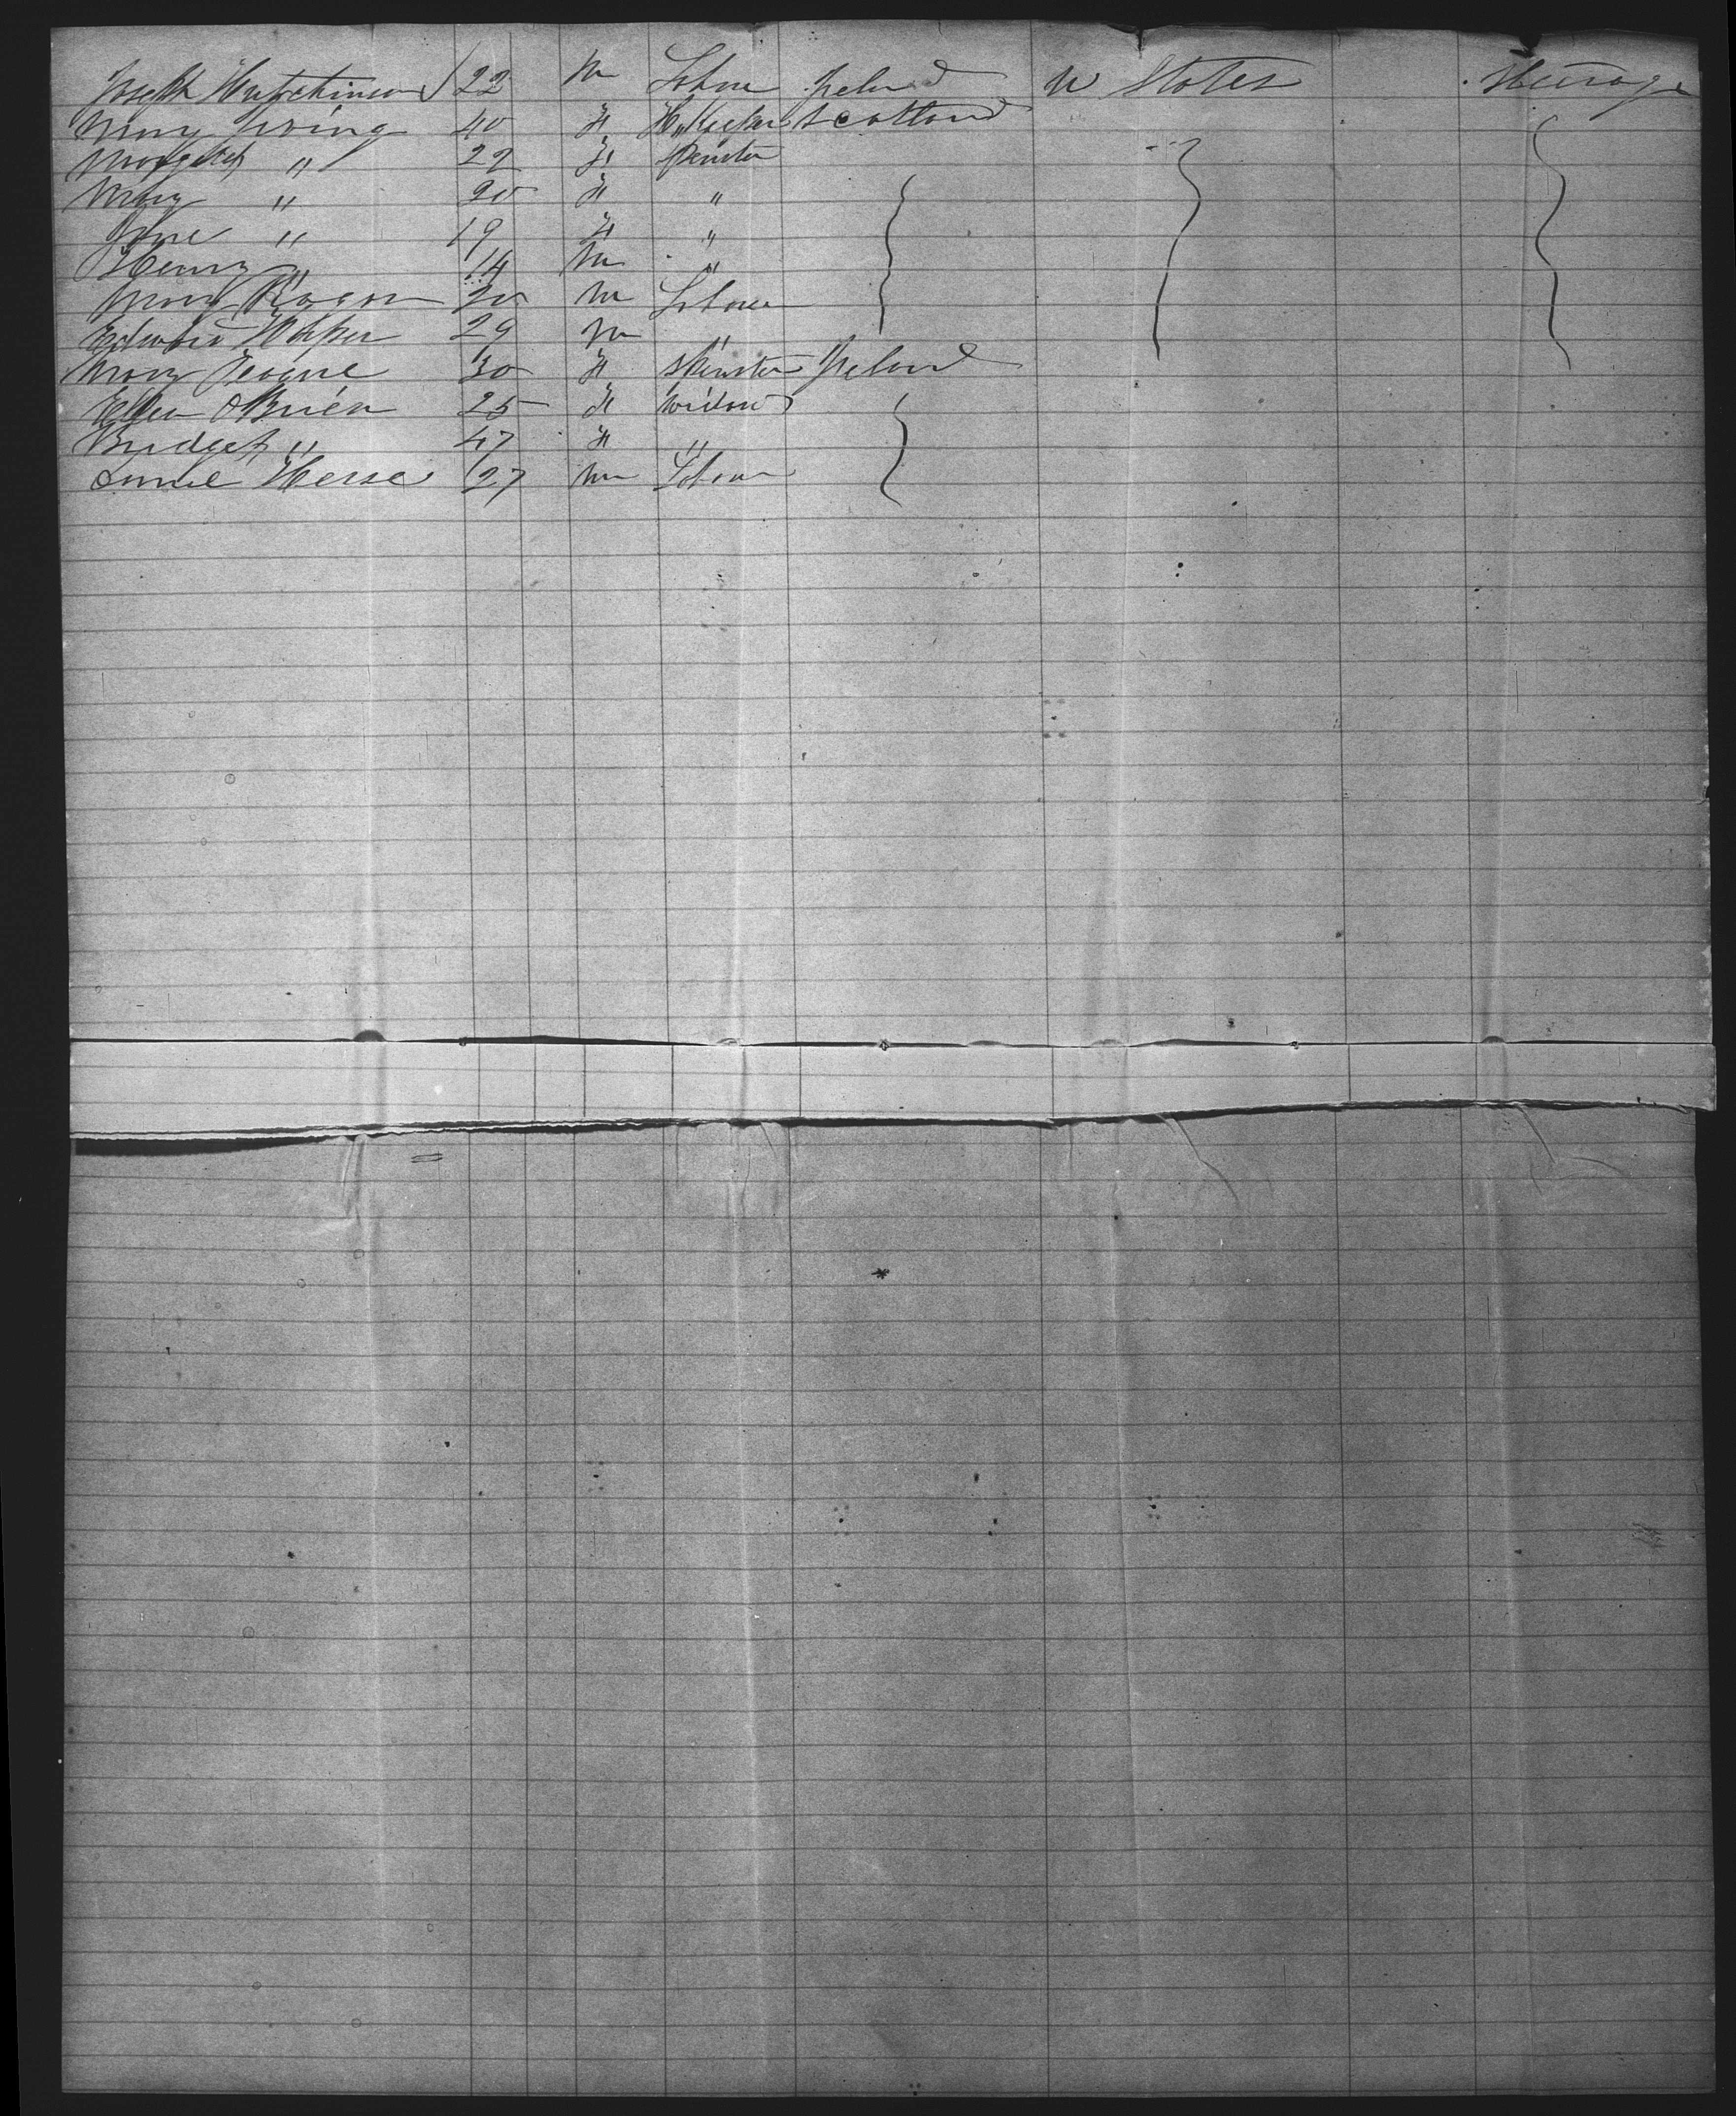 Joseph Hutchinson 22 m Labour Ireland U States Steerage
Mary Irving 40 F H. Keeper Scotland
Margaret " 22 F Spinster
Mary " 20 F "
Jane " 19 F "
Henry " 14 m "
Mary 20 m Labourer
Edward 29 m "
Mary Teague 30 F Spinster Ireland
Ellen O Brien 25 F Widow
Bridget " 47 F "
27 m Labour